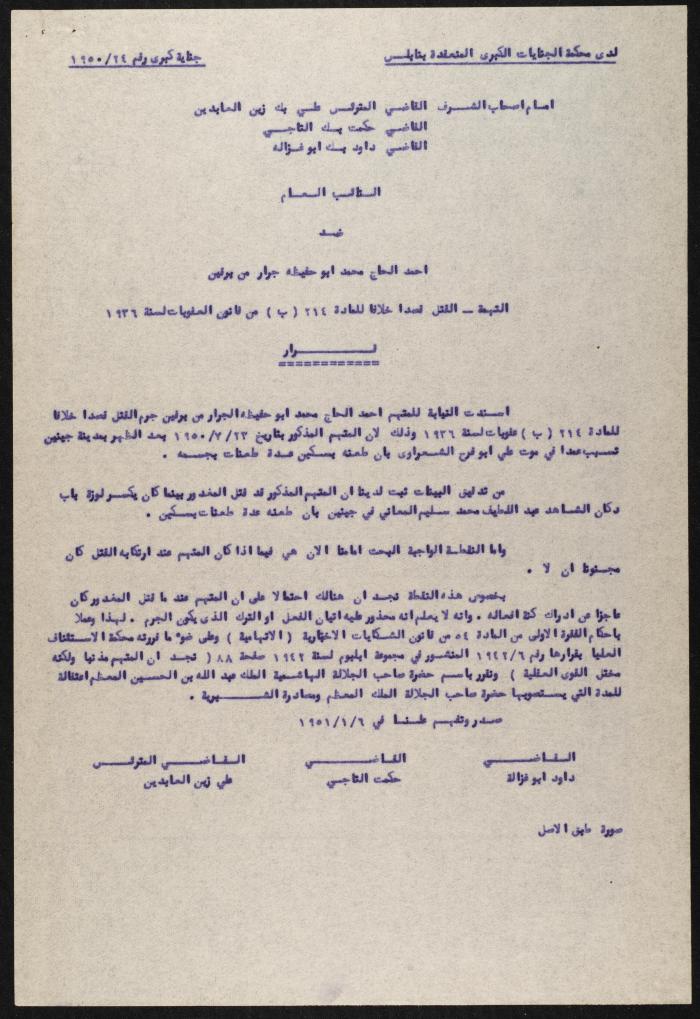 لدى محكمة الجنايات الكبرى المنعقدة بنابلس
جناية كبرى رقم ٢٤/١٩٥٠
امام اصحاب الشرف القاضي المترئس علي بك زين العابدين
القاضي حكمت بك التاجي
القاضي داود بك ابو غزاله
النائب العام
ضد
احمد الحاج محمد ابو حفيظه جرار من برقين
التهمة ــ القتل قصدا خلافا للمادة ٢١٤ ( ب ) من قانون العقوبات لسنة ١٩٣٦
قرار
============
اسندت النيابة للمتهم احمد الحاج محمد ابو حفيظه الجرار من برقين جرم القتل قصدا خلافا
للمادة ٢١٤ ( ب ) عقوبات لسنة ١٩٣٦ وذلك لان المتهم المذكور بتاريخ ٢٣/٧/١٩٥٠ بعد الظهر بمدينة جينين
تسبب عمدا في موت علي ابو فرح الشعراوى بان طعنه بسكين عدة طعنات بجسمه .
من تدقيق البينات ثبت لدينا ان المتهم المذكور قد قتل المغدور بينما كان يكسر لوزة باب
دكان الشاهد عبد اللطيف محمد سليم المعاني في جينين بان طعنه عدة طعنات بسكين .
واما النقطة الواجبة البحث امامنا الان هي فيما اذا كان المتهم عند ارتكابه القتل كان
مجنونا ان لا .
بخصوص هذه النقطة نجد ان هنالك احتمالا على ان المتهم عند ما قتل المغدور كان
عاجزا عن ادراك كنة افعاله . وانه لا يعلم انه محذور عليه اتيان الفعل او الترك الذى يكون الجرم . لهذا وعملا
باحكام الفقرة الاولى من المادة ٥٤ من قانون الشكايات الاخبارية ( الاتهامية ) وعلى ضوء ما قررته محكمة الاستئناف
العليا بقرارها رقم ٦/١٩٤٢ المنشور في مجموعة ابليوم لسنة ١٩٤٢ صفحة ٨٨ ( نجد ان المتهم مذنبا ولكنه
مختل القوى العقلية ) ونقرر باسم حضرة صاحب الجلالة الهاشمية الملك عبد الله بن الحسين المعظم اعتقالة
للمدة التي يستصوبها حضرة صاحب الجلالة الملك المعظم ومصادرة الشبرية .
صدر وتفهم علنا في ٦/١/١٩٥١
القاضي القاضي القاضي المترئس
داود ابو غزالة حكمت التاجي علي زين العابدين
صورة طبق الاصل